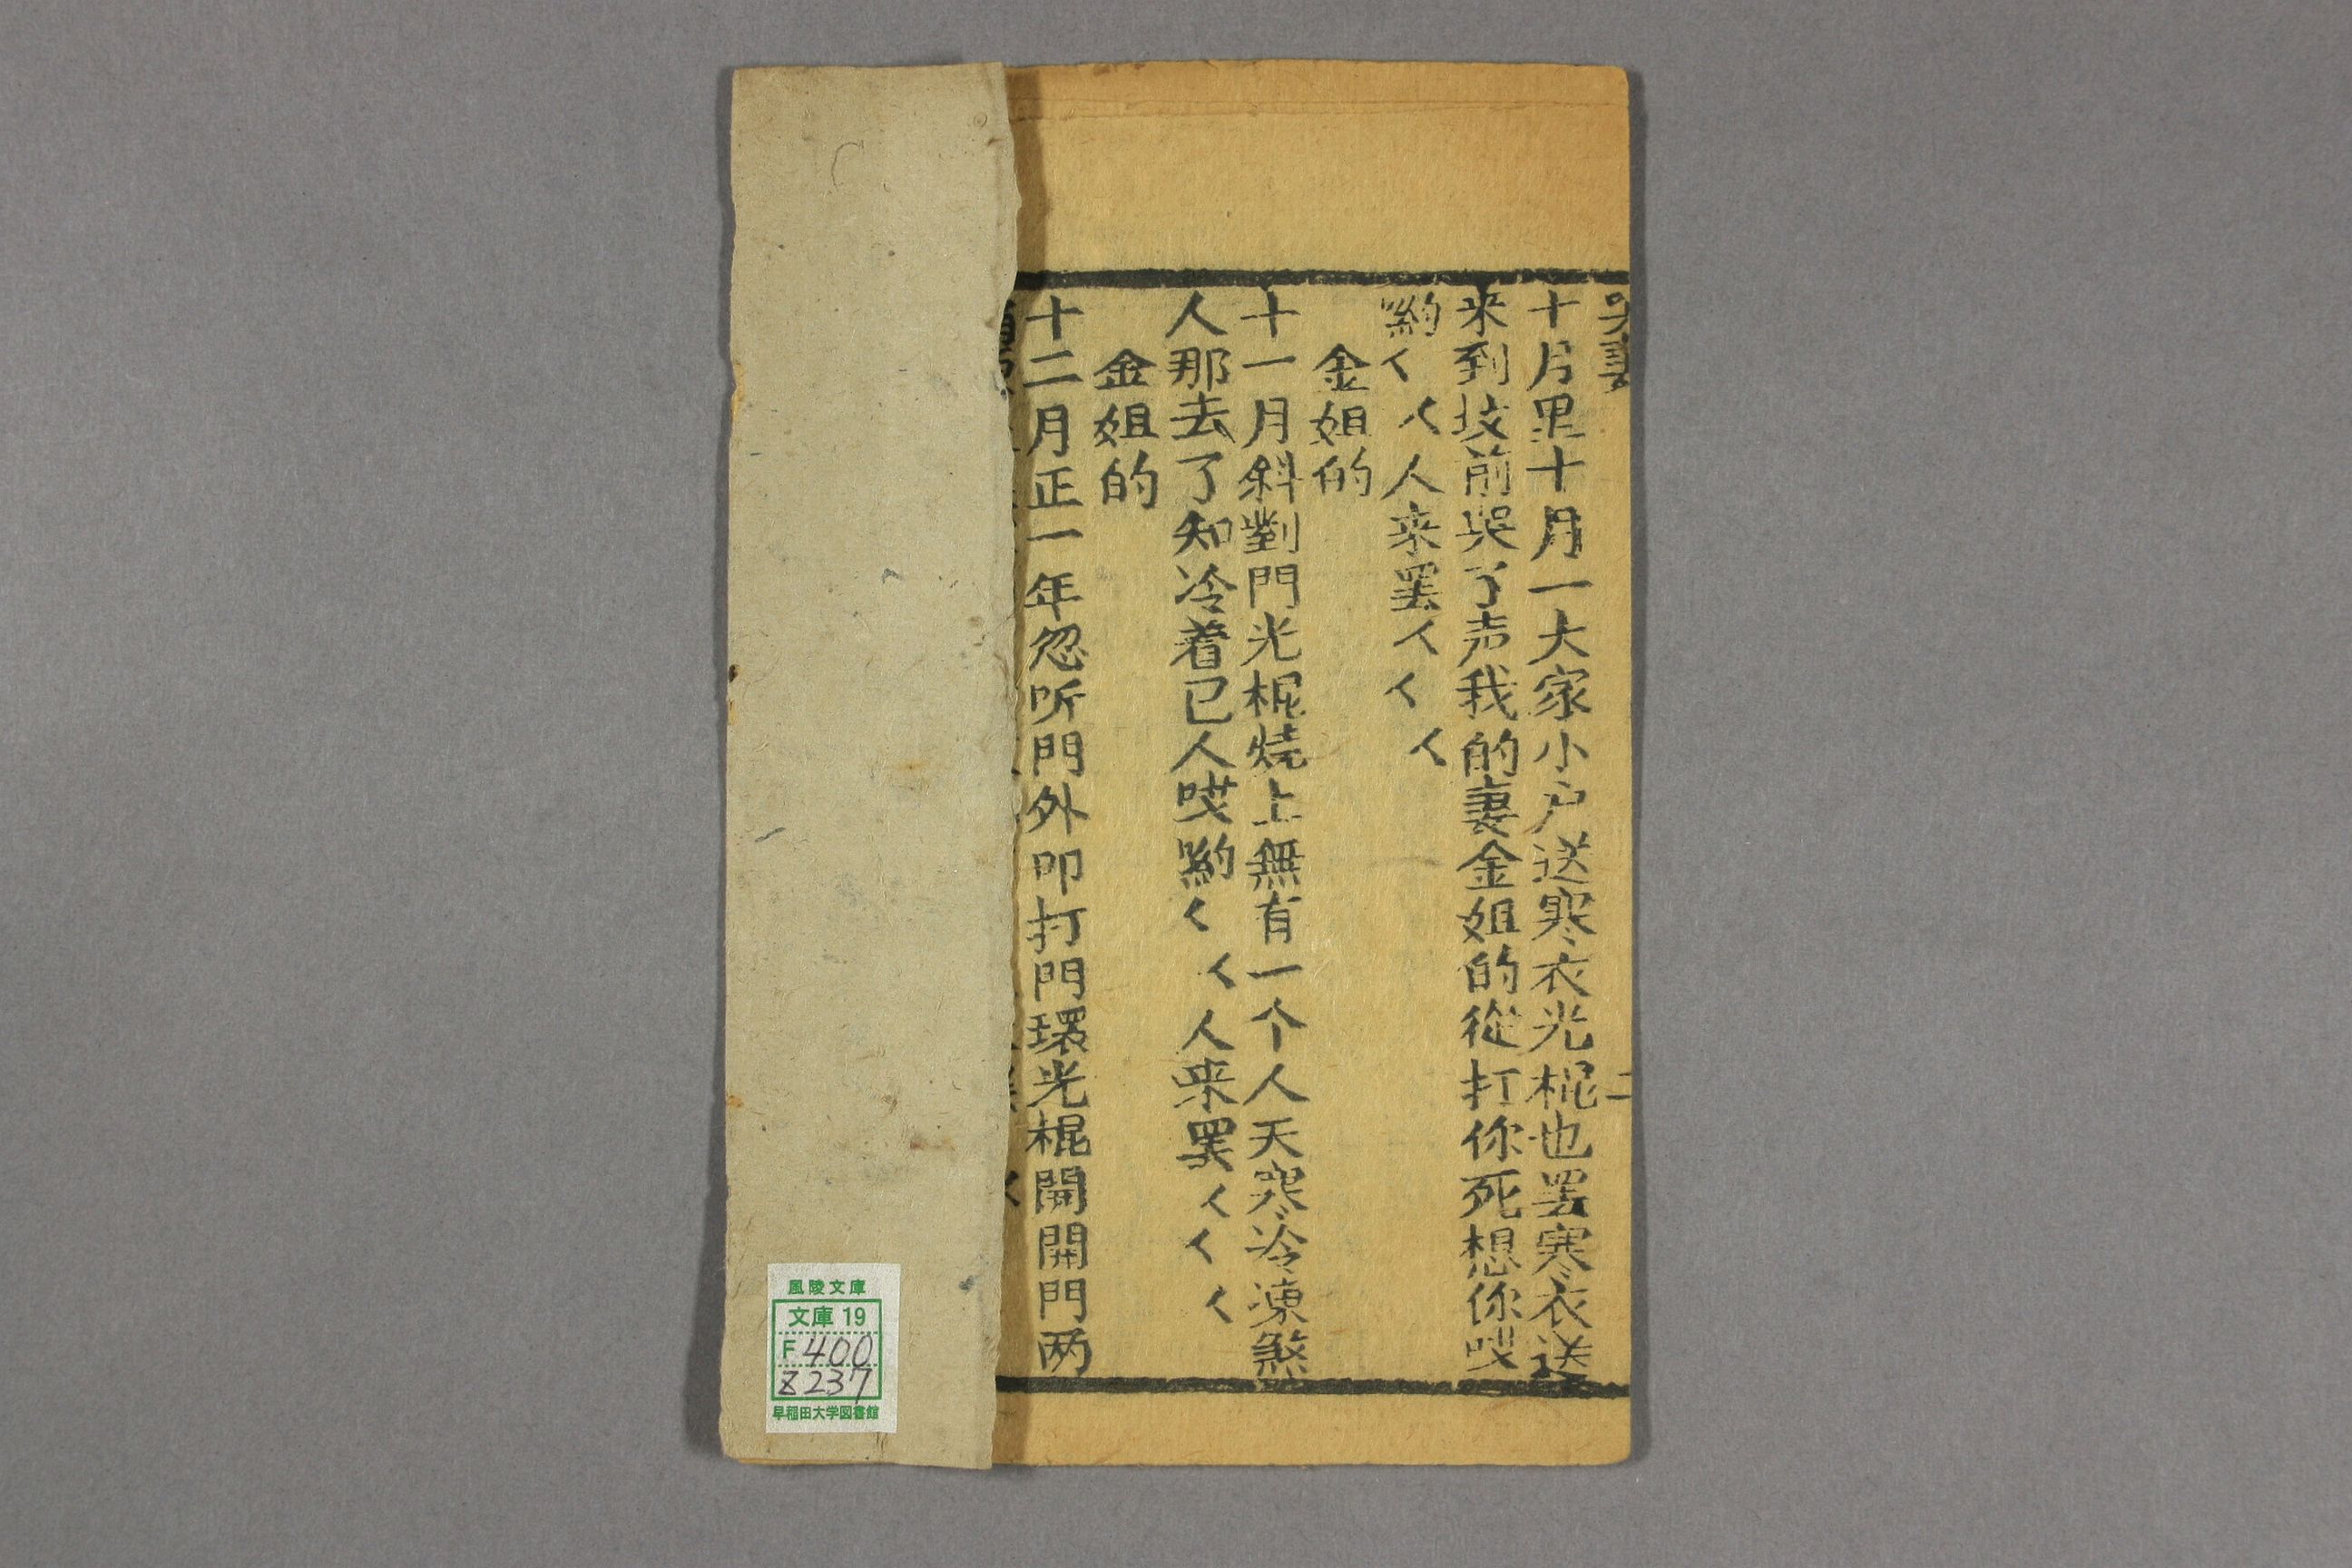 哭妻
二
十月里十月一大家小户送寒衣光棍也罢寒衣送
来到坟前哭了声我的妻金姐的從打你死想你哎
喲く く人来罢く く く
金姐的
十一月斜對門光棍炕上無有一个人天寒冷凍煞
人那去了知冷着已人哎喲く く人来罢く く く
金姐的
十二月正一年忽听門外叩打門環光棍開開門两
風陵文庫
文庫 19
F 400
Z 237
早稲田大学図書館